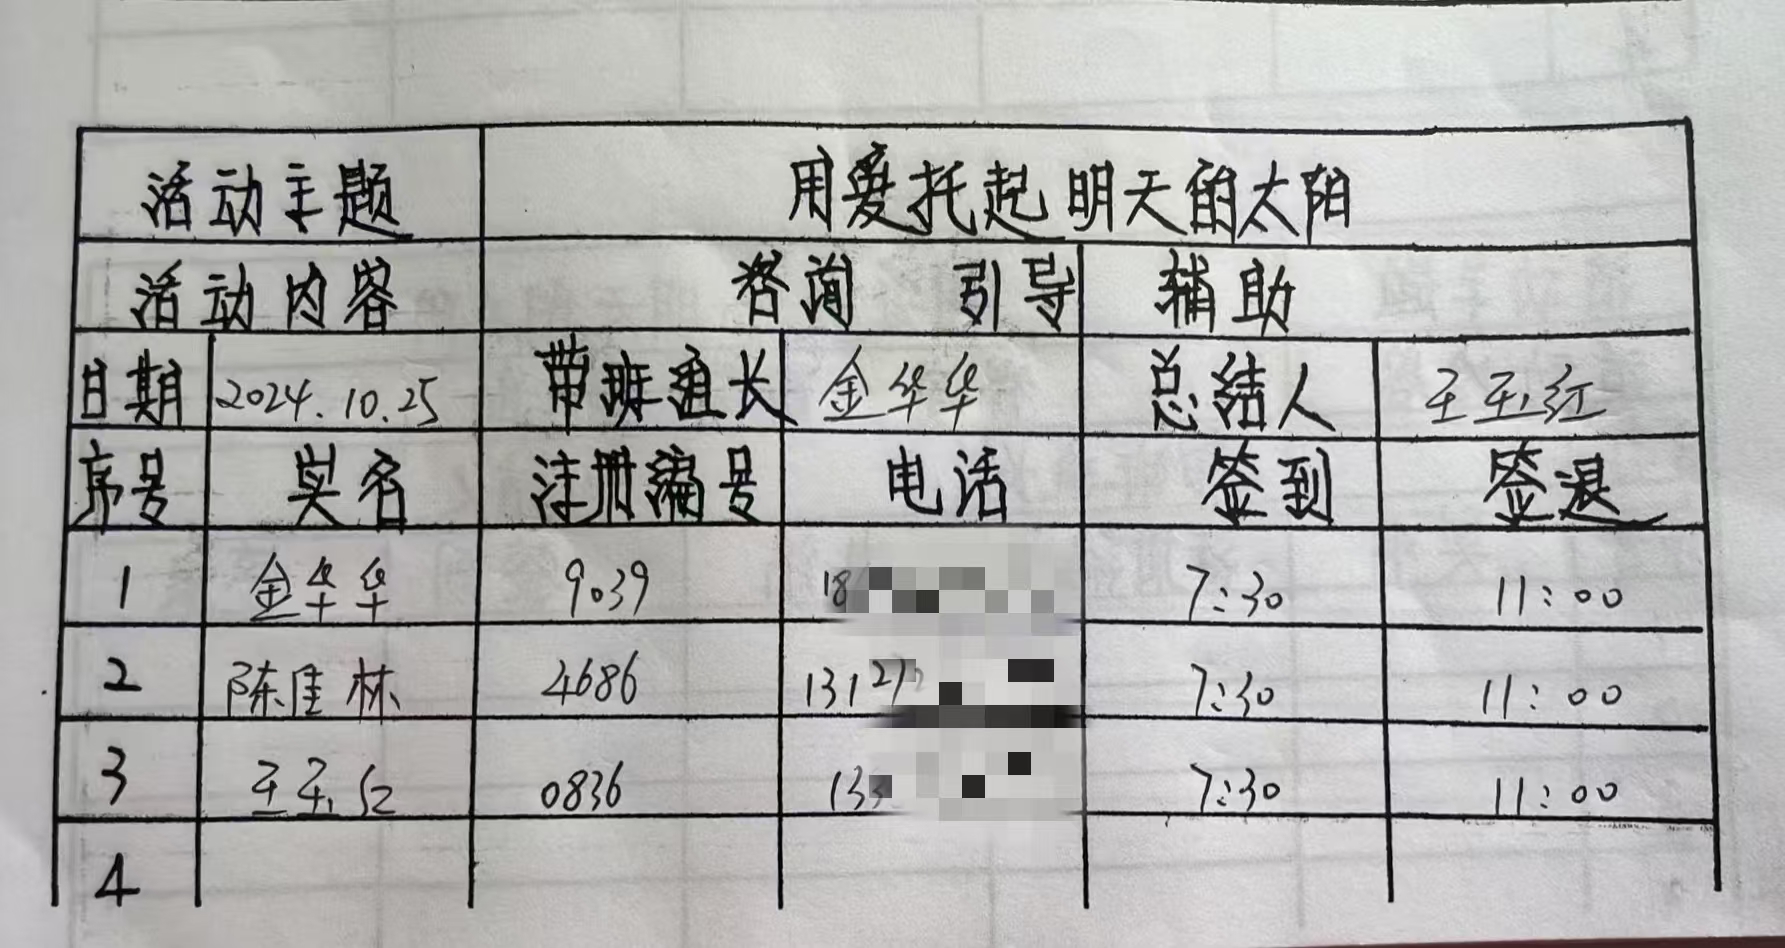 活动主题 用爱托起明天的太阳
活动内容 咨询 引导 辅助
日期 2024.10.25 带班组长 金华华 总结人 王玉红
序号 姓名 注册编号 电话 签到 签退
1 金华华 9039 18 7:30 11:00
2 陈佳林 4686 13127 7:30 11:00
3 王玉红 0836 133 7:30 11:00
4